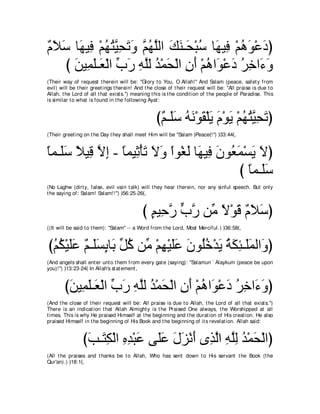 دَعْوَهُمْ فِيهَا سُبْحَـنَكَ اللَّهُمَّ وَتَحِيَّتُهُمْ فِيهَا سَلاَمٌ
وَءَاخِرُ دَعْوَاهُمْ أَنِ الْحَمْدُ للَّهِ رَبِّ الْعَـلَمِينَ )
(Their way of request therein will be: "Glory to You, O Allah!'' And Salam (peace, safety from evil) will be their greetings therein! And the close of their request will be: "All praise is due to Allah, the Lord of all that exists.'') meaning this is the condition of the people of Paradise. This is similar to what is found in the following Ayat:
(تَحِيَّتُهُمْ يَوْمَ يَلْقَوْنَهُ سَلَـمٌ)
(Their greeting on the Day they shall meet Him will be "Salam (Peace)!'') )33:44(,
(لاَ يَسْمَعُونَ فِيهَا لَغْواً وَلاَ تَأْثِيماً - إِلاَّ قِيلاً سَلَـماً
سَلَـماً )
(No Laghw (dirty, false, evil vain talk) will they hear therein, nor any sinful speech. But only the saying of: Salam! Salam!'') )56:25-26(,
(سَلاَمٌ قَوْلاً مِّن رَّبٍّ رَّحِيمٍ )
((It will be said to them): "Salam'' -- a Word from the Lord, Most Merciful.) )36:58(,
(وَالمَلَـئِكَةُ يَدْخُلُونَ عَلَيْهِمْ مِّن كُلِّ بَابٍسَلَـمٌ عَلَيْكُمُ)
(And angels shall enter unto them from every gate (saying): "Salamun `Alaykum (peace be upon you)!'') )13:23-24( In Allah's statement,
(وَءَاخِرُ دَعْوَاهُمْ أَنِ الْحَمْدُ للَّهِ رَبِّ الْعَـلَمِينَ)
(And the close of their request will be: All praise is due to Allah, the Lord of all that exists.'') There is an indication that Allah Almighty is the Praised One always, the Worshipped at all times. This is why He praised Himself at the beginning and the duration of His creation. He also praised Himself in the beginning of His Book and the beginning of its revelation. Allah said:
(الْحَمْدُ لِلَّهِ الَّذِى أَنْزَلَ عَلَى عَبْدِهِ الْكِتَـبَ)
(All the praises and thanks be to Allah, Who has sent down to His servant the Book (the Qur'an).) )18:1(,